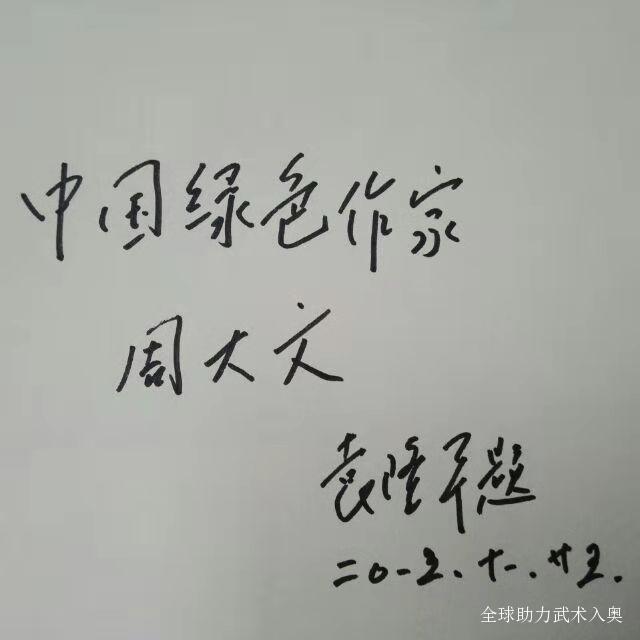 中国绿色作家
周大文
袁隆平题
二0一2.十一.廿2.
全球助力武术入奥